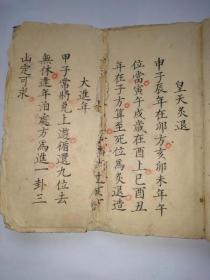 皇天炙退
申子辰年在卯方亥卯未年午
位當寅午戌歲在酉上巳酉丑
年在子方算至死位爲炙退造
大進年
甲子常將兌上遊循還九位去
無休逢年泊處方爲進一卦三
山定可求